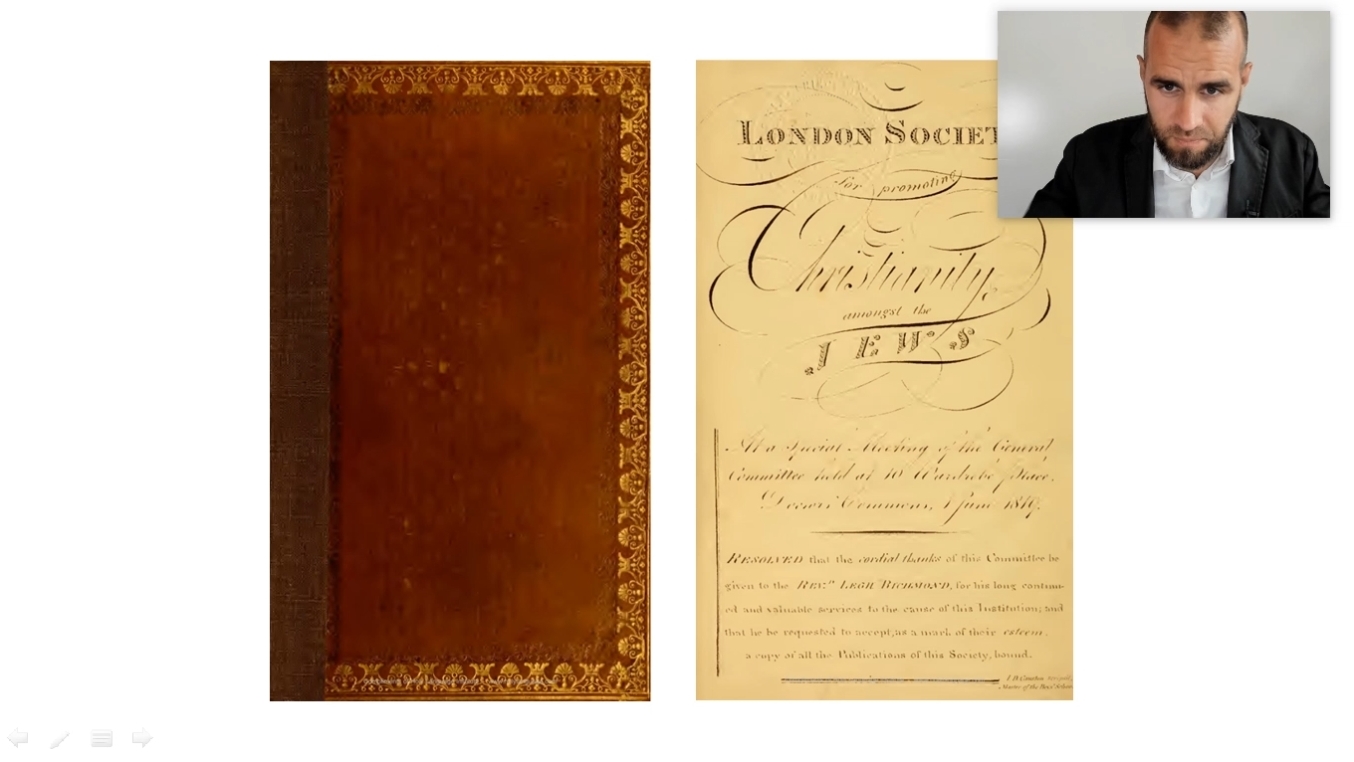 LONDON SOCIET
for promoting
Christianity,
amongst the
JEWS
At a Special Meeting of the General
Committee held at 10 Wardrobe Place,
Doctors Commons, 1 June 1819.
RESOLVED that the cordial thanks of this Committee be
given to the REV.D LEGH RICHMOND, for his long continu-
ed and valuable services to the cause of this Institution; and
that he be requested to accept, as a mark of their esteem,
a copy of all the Publications of this Society, bound.